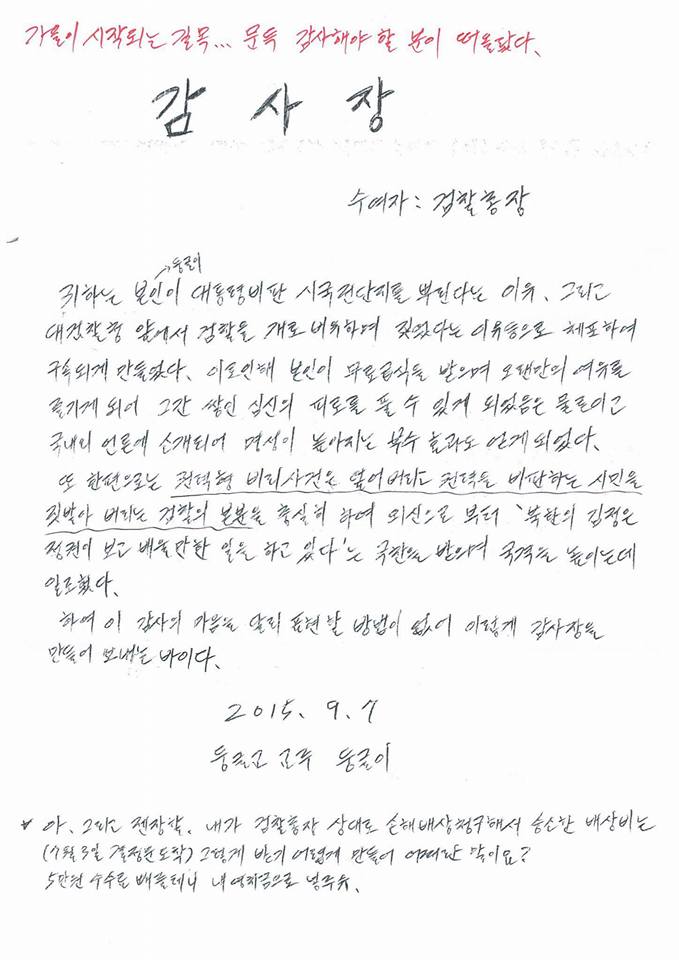 가을이 시작되는 길목... 문득 감사해야 할 분이 떠올랐다.
감 사 장
수여자 : 검찰총장
둥글이
귀하는 본인이 대통령비판 시국전단지를 뿌린다는 이유, 그리고
대검찰청 앞에서 검찰을 개로 비유하며 짖었다는 이유등으로 체포하여
구속되게 만들었다. 이로인해 본인이 무료급식을 받으며 오랜만의 여유를
즐기게 되어 그간 쌓인 심신의 피로를 풀 수 있게 되었음은 물론이고
국내외 언론에 소개되어 명성이 높아지는 복수 효과도 얻게되었다.
또 한편으로는 권력형 비리사건은 덮어버리고 권력을 비판하는 시민을
짓밟아 버리는 검찰의 본분을 충실히 하여 외신으로 부터 '북한의 김정은
정권이 보고 배울만한 일을 하고 있다'는 극찬을 받으며 국격을 높이는데
일조했다.
하여 이 감사의 마음을 달리 표현할 방법이 없어 이렇게 감사장을
만들어 보내는 바이다.
2015. 9. 7
둥글이
* 아, 그리고 젠장할, 내가 검찰총장 상대로 손해배상청구해서 승소한 배상비는
(9월3일 결정문도착) 그렇게 받기 어렵게 만들어 어쩌란 말이요?
5만원 수수료 빼줄테니 내 영치금으로 넣주유.